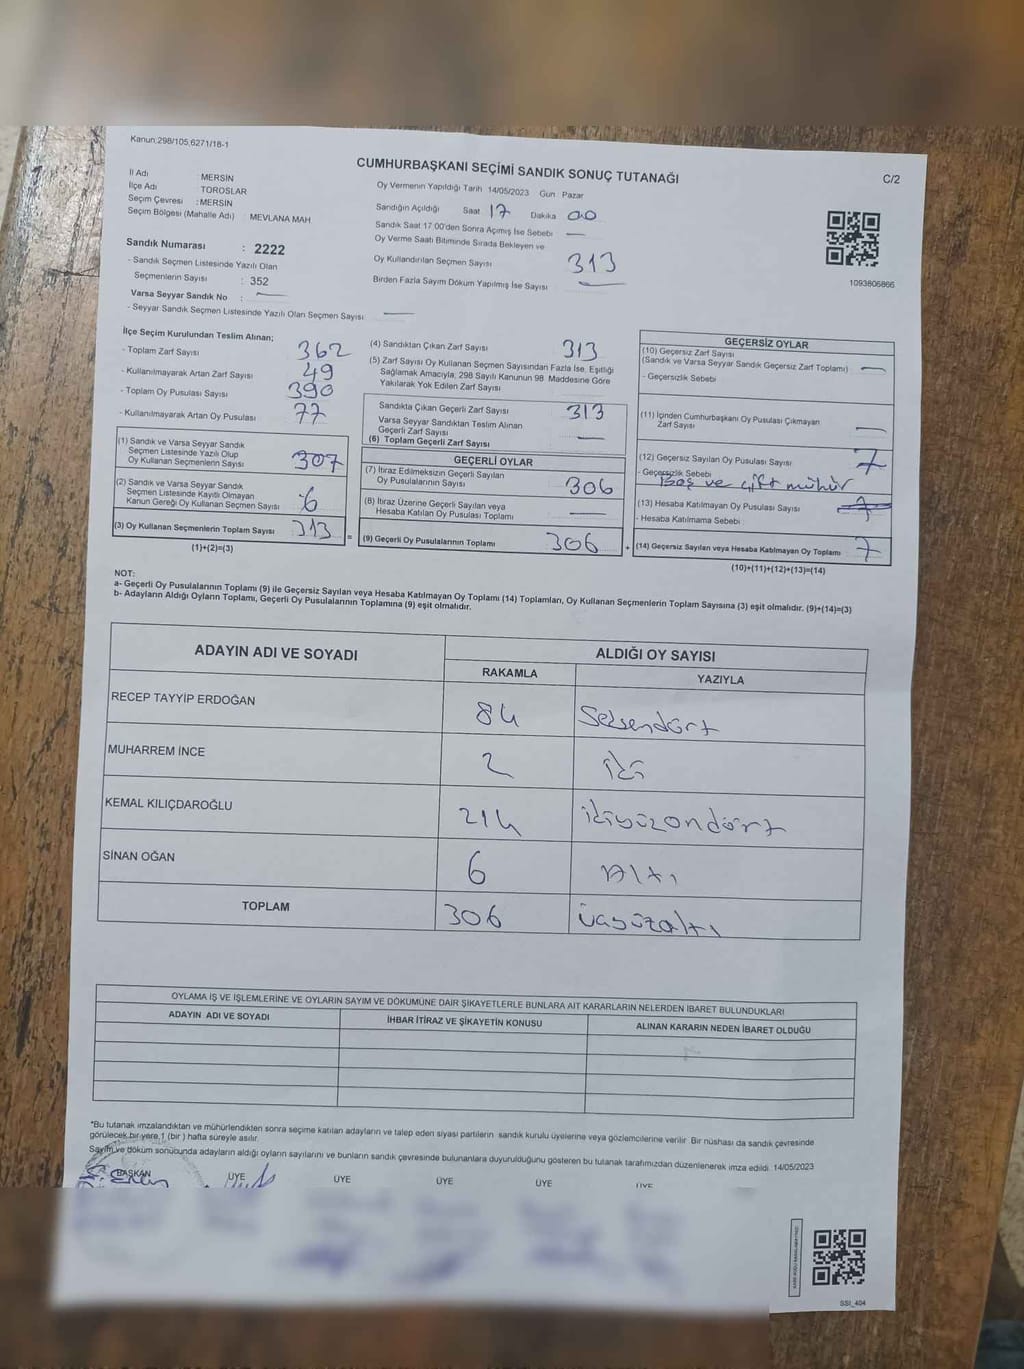 Kanun:298/105,6271/18-1
CUMHURBAŞKANI SEÇİMİ SANDIK SONUÇ TUTANAĞI
C/2
İl Adı : MERSİN
İlçe Adı TOROSLAR
Seçim Çevresi : MERSİN
Seçim Bölgesi (Mahalle Adı) : MEVLANA MAH
Oy Vermenin Yapıldığı Tarih 14/05/2023 Gün Pazar
Sandığın Açıldığı Saat 17 Dakika 00
Sandık Saat 17:00'den Sonra Açılmış İse Sebebi —
Oy Verme Saati Bitiminde Sırada Bekleyen ve
Oy Kullandırılan Seçmen Sayısı 313
Birden Fazla Sayım Döküm Yapılmış İse Sayısı —
1093806866
Sandık Numarası : 2222
- Sandık Seçmen Listesinde Yazılı Olan
Seçmenlerin Sayısı : 352
Varsa Seyyar Sandık No : —
- Seyyar Sandık Seçmen Listesinde Yazılı Olan Seçmen Sayısı —
İlçe Seçim Kurulundan Teslim Alınan;
- Toplam Zarf Sayısı 362
- Kullanılmayarak Artan Zarf Sayısı 49
- Toplam Oy Pusulası Sayısı 390
- Kullanılmayarak Artan Oy Pusulası 77
(1) Sandık ve Varsa Seyyar Sandık
Seçmen Listesinde Yazılı Olup
Oy Kullanan Seçmenlerin Sayısı 307
(2) Sandık ve Varsa Seyyar Sandık
Seçmen Listesinde Kayıtlı Olmayan
Kanun Gereği Oy Kullanan Seçmen Sayısı 6
(3) Oy Kullanan Seçmenlerin Toplam Sayısı 313
(1)+(2)=(3)
(4) Sandıktan Çıkan Zarf Sayısı 313
(5) Zarf Sayısı Oy Kullanan Seçmen Sayısından Fazla İse, Eşitliği
Sağlamak Amacıyla, 298 Sayılı Kanunun 98. Maddesine Göre
Yakılarak Yok Edilen Zarf Sayısı
Sandıkta Çıkan Geçerli Zarf Sayısı 313
Varsa Seyyar Sandıktan Teslim Alınan
Geçerli Zarf Sayısı —
(6) Toplam Geçerli Zarf Sayısı
GEÇERLİ OYLAR
(7) İtiraz Edilmeksizin Geçerli Sayılan
Oy Pusulalarının Sayısı 306
(8) İtiraz Üzerine Geçerli Sayılan veya
Hesaba Katılan Oy Pusulası Toplamı —
= (9) Geçerli Oy Pusulalarının Toplamı 306
GEÇERSİZ OYLAR
(10) Geçersiz Zarf Sayısı
(Sandık ve Varsa Seyyar Sandık Geçersiz Zarf Toplamı) —
- Geçersizlik Sebebi
(11) İçinden Cumhurbaşkanı Oy Pusulası Çıkmayan
Zarf Sayısı —
(12) Geçersiz Sayılan Oy Pusulası Sayısı 7
- Geçersizlik Sebebi
Boş ve çift mühür
(13) Hesaba Katılmayan Oy Pusulası Sayısı 7
- Hesaba Katılmama Sebebi
+ (14) Geçersiz Sayılan veya Hesaba Katılmayan Oy Toplamı 7
(10)+(11)+(12)+(13)=(14)
NOT:
a- Geçerli Oy Pusulalarının Toplamı (9) ile Geçersiz Sayılan veya Hesaba Katılmayan Oy Toplamı (14) Toplamları, Oy Kullanan Seçmenlerin Toplam Sayısına (3) eşit olmalıdır. (9)+(14)=(3)
b- Adayların Aldığı Oyların Toplamı, Geçerli Oy Pusulalarının Toplamına (9) eşit olmalıdır.
ADAYIN ADI VE SOYADI
ALDIĞI OY SAYISI
RAKAMLA YAZIYLA
RECEP TAYYİP ERDOĞAN 84 Seksendört
MUHARREM İNCE 2 iki
KEMAL KILIÇDAROĞLU 214 ikiyüzondört
SİNAN OĞAN 6 Altı
TOPLAM 306 üçyüzaltı
OYLAMA İŞ VE İŞLEMLERİNE VE OYLARIN SAYIM VE DÖKÜMÜNE DAİR ŞİKAYETLERLE BUNLARA AİT KARARLARIN NELERDEN İBARET BULUNDUKLARI
ADAYIN ADI VE SOYADI İHBAR İTİRAZ VE ŞİKAYETİN KONUSU ALINAN KARARIN NEDEN İBARET OLDUĞU
*Bu tutanak imzalandıktan ve mühürlendikten sonra seçime katılan adayların ve talep eden siyasi partilerin sandık kurulu üyelerine veya gözlemcilerine verilir. Bir nüshası da sandık çevresinde
görülecek bir yere 1 (bir) hafta süreyle asılır.
Sayım ve döküm sonucunda adayların aldığı oyların sayılarını ve bunların sandık çevresinde bulunanlara duyurulduğunu gösteren bu tutanak tarafımızdan düzenlenerek imza edildi. 14/05/2023
BAŞKAN ÜYE ÜYE ÜYE ÜYE ÜYE
SSI_404